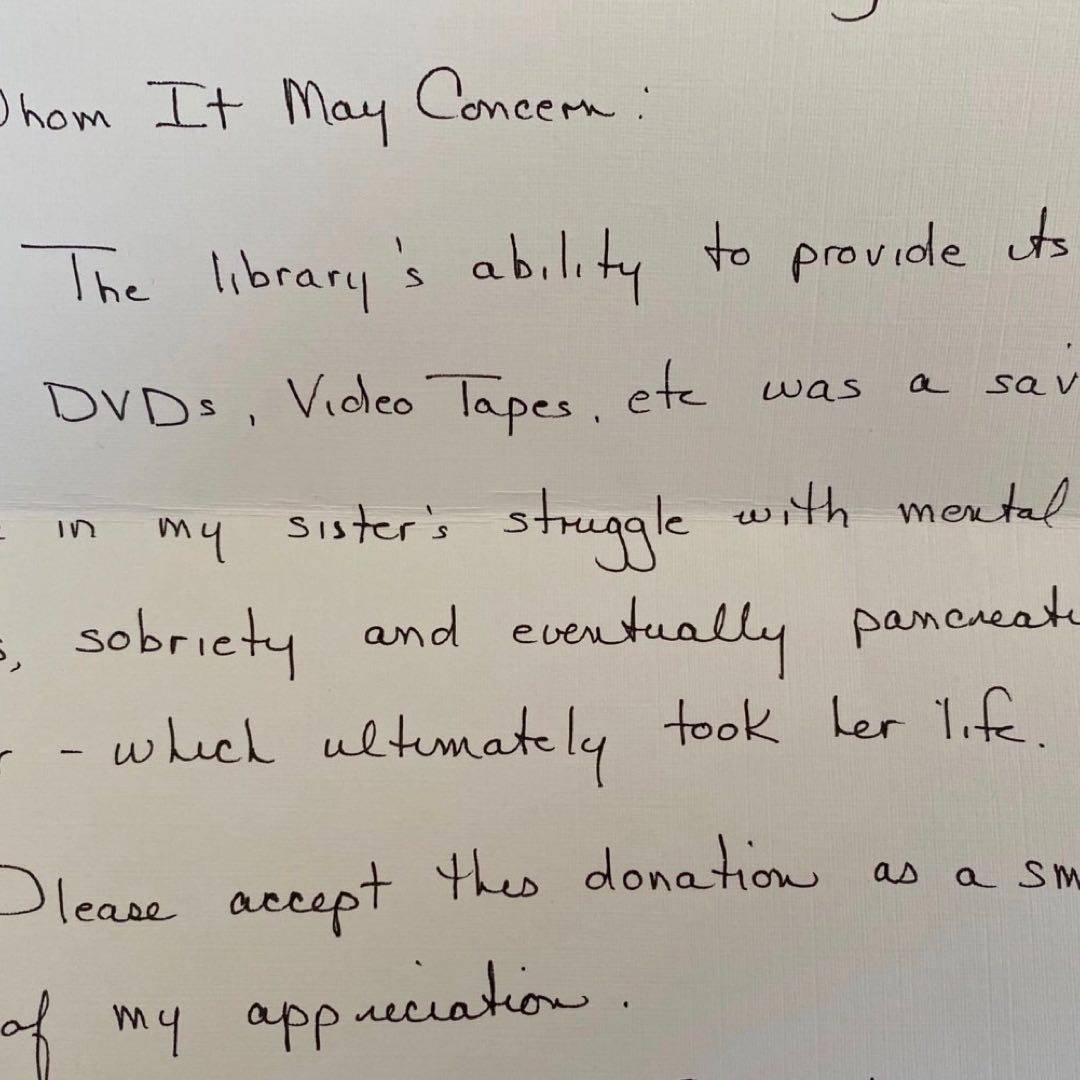 hom It May Concern:
The library's ability to provide its
DVDs, Video Tapes, etc was a sav
in my sister's struggle with mental
s, sobriety and eventually pancreati
r - which ultimately took her life.
Please accept this donation as a sm
of my appreciation.